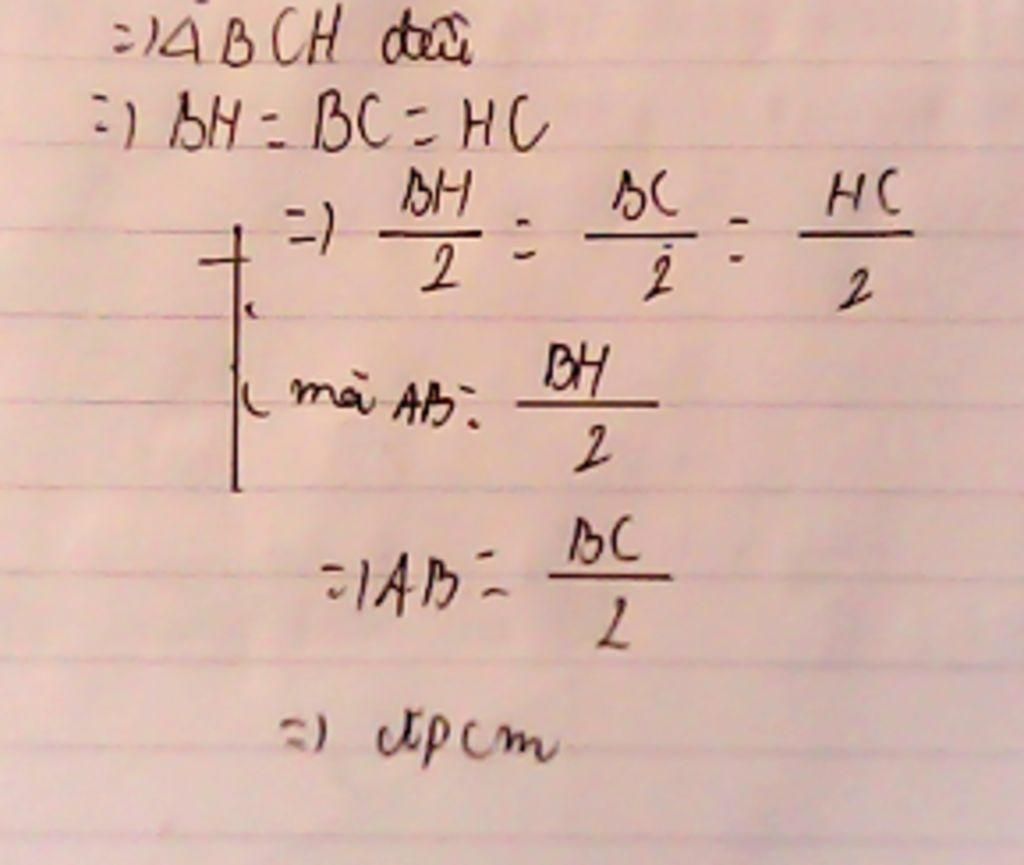 =) Δ BCH đều
=) BH = BC = HC
=) BH/2 = BC/2 = HC/2
mà AB = BH/2
=) AB = BC/2
=) đpcm